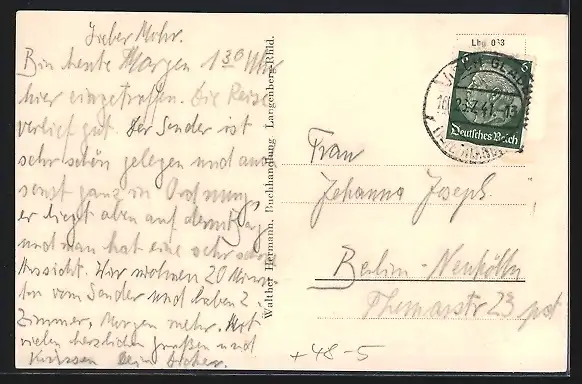 Lieber Mohr.
Bin heute Morgen 1 30 Uhr
hier eingetroffen. Die Reise
verlief gut. Der Sender ist
sehr schön gelegen und auch
sonst ganz in Ordnung
er liegt oben auf dem Berg
und man hat eine sehr schöne
Aussicht. Wir wohnen 20 Minu-
ten vom Sender und haben 2
Zimmer. Morgen mehr. Mit
vielen herzlichen Grüßen und
Küssen Dein
Walther Hermann, Buchhandlung, Langenberg-Rhld.
Lbg 033
6
Deutsches Reich
Frau
Johanna Joseph
Berlin-Neukölln
Thomasstr 23 pt
+48-5